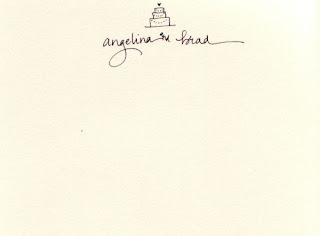 angelina & brad